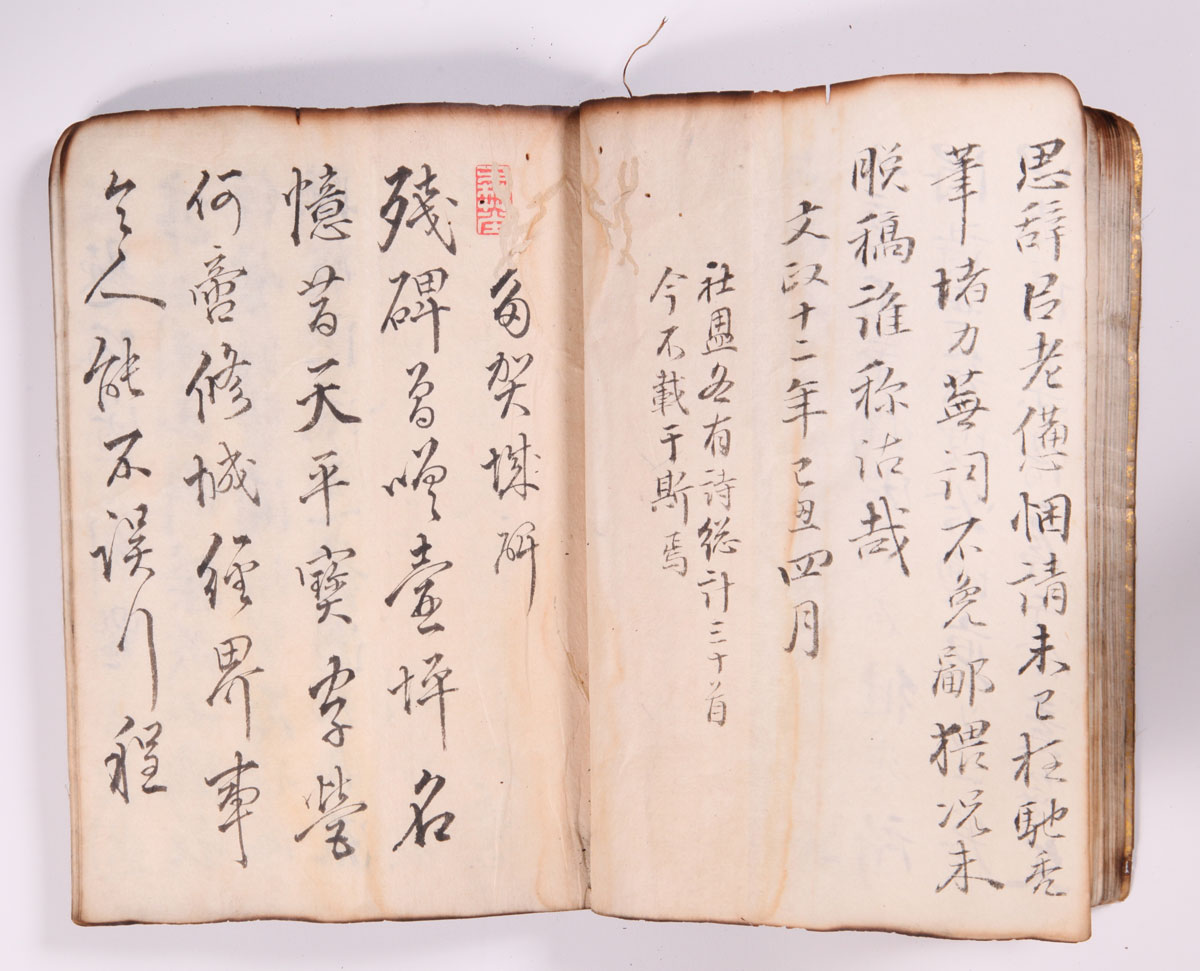 思辞臣老億悃請未已枉馳禿
筆堵力蕪詞不免鄙猥况未
脱稿誰称沽哉
文政十二年己丑四月
社盟各有詩総計三十首
今不載于斯焉
多賀城碑
残碑曽嘆壷坤名
憶昔天平寶字営
何啻修城経界事
令人能不誤行程